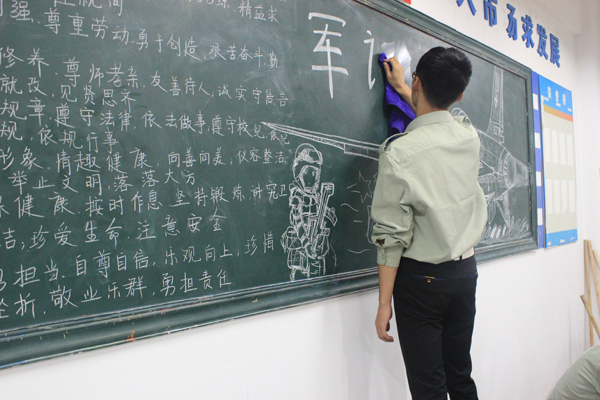 尊重劳动,勇于创造,艰苦奋斗,勤
精益求
人市场求发展
军
修养.尊师孝亲.友善待人,诚实守信言
就改,见贤思齐
规章.遵守法律.依法做事,遵守校纪
规,依规行事
情趣健康.向善向美,仪容整洁
举止文明,落落大方
健康.按时作息.坚持锻炼.讲究卫
洁;珍爱生命.注意安全
担当.自尊自信.乐观向上,珍惜
挫折,敬业乐群.勇担责任